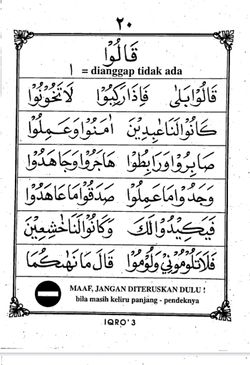 ٢٠
قَالُوْا
ا = dianggap tidak ada
قَالُوْا بَلٰى فَاِذَا رَكِبُوْا لَا تَخُوْنُوْا
كَانُوْا لَنَا عٰبِدِيْنَ اٰمَنُوْا وَعَمِلُوْا
صَابِرُوْا وَرَابِطُوْا هَاجَرُوْا وَجَاهَدُوْا
وَجَدُوْا مَا عَمِلُوْا صَدَقُوْا مَا عَاهَدُوْا
فَيَكِيْدُوْا لَكَ وَكَانُوْا لَنَا خٰشِعِيْنَ
فَلَا تَلُوْمُوْنِيْ وَلُوْمُوْا قَالَ مَا نَهٰىكُمَا
MAAF, JANGAN DITERUSKAN DULU !
bila masih keliru panjang - pendeknya
IQRO' 3